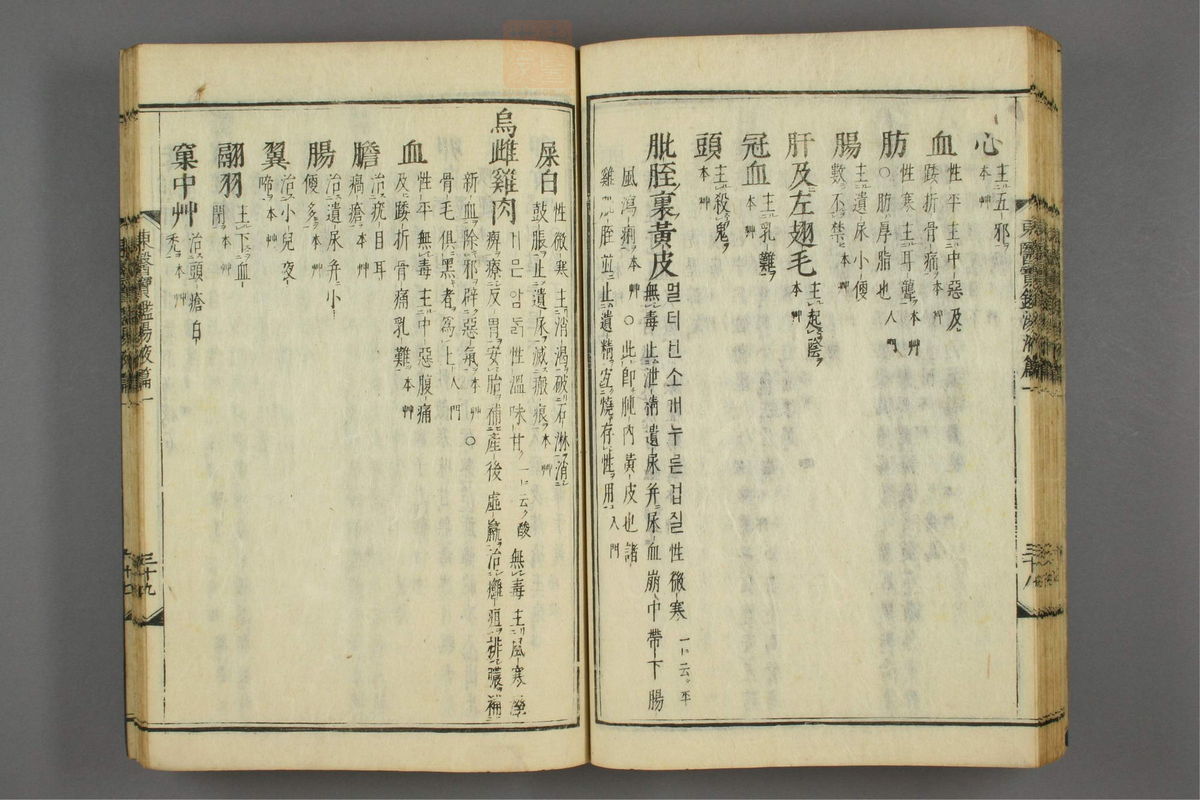 心 主五邪
本艸
血 性平主中惡及
踒折骨痛本艸
肪 性寒主耳聾本艸
○肪厚脂也入門
腸 主遺尿小便
數不禁本艸
肝及左翅毛 主起陰本艸
冠血 主乳難
本艸
頭 主殺鬼
本艸
肶胵裏黃皮 멀터구니소개누른겁질性微寒一云平
無毒止泄精遺尿幷尿血崩中帶下腸
風瀉痢本艸○此卽肫內黃皮也諸
雞肶胵並止遺精宜燒存性用入門
屎白 性微寒主消渴破石淋消
鼓脹止遺尿滅瘢痕本艸
烏雌雞肉 거믄암ᄃᆞᆰ性溫味甘一云酸無毒主風寒濕
痺療反胃安胎補產後虛羸治癰疽排膿補
新血除邪辟惡氣本艸○
骨毛俱黑者爲上入門
血 性平無毒主中惡腹痛
及踒折骨痛乳難本艸
膽 治疣目耳
瘑瘡本艸
腸 治遺尿幷小
便多本艸
翼 治小兒夜
啼本艸
翮羽 主下血
閉本艸
窠中艸 治頭瘡白
禿本艸
東醫寶鑑湯液篇一
三十九
東醫寶鑑湯液篇一
三十八